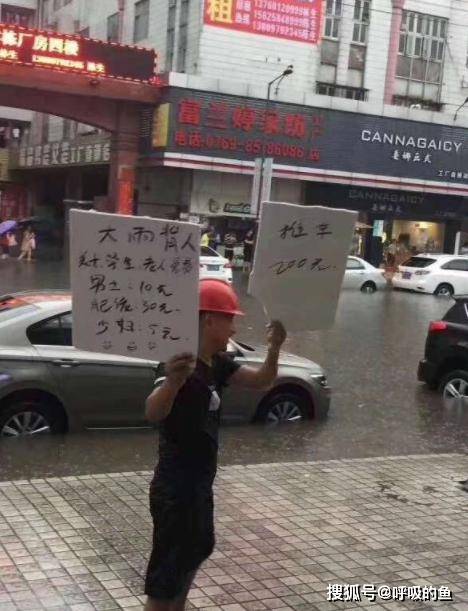 租
13760120999
15625848999
13009792345
栋厂房西楼
富兰婷家纺
电话:0769-85186086 店
CANNAGAICY
姜娜正式
工厂直
CANNAGAICY
大雨背人
关于学生 老人 免费
男士:10元
肥佬:30元
少妇:5元
推车
200元
搜狐号@呼吸的鱼